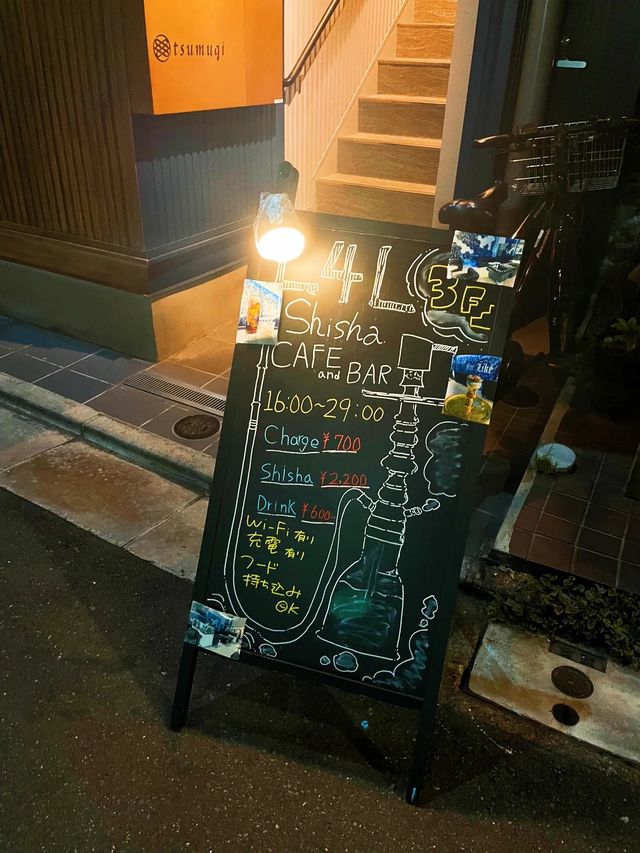 tsumugi
4L
3F
Shisha
CAFE
and BAR
16:00~29:00
Charge ¥700
Shisha ¥2,200
Drink ¥600-
Wi-Fi 有り
充電 有り
フード
持ち込み
OK